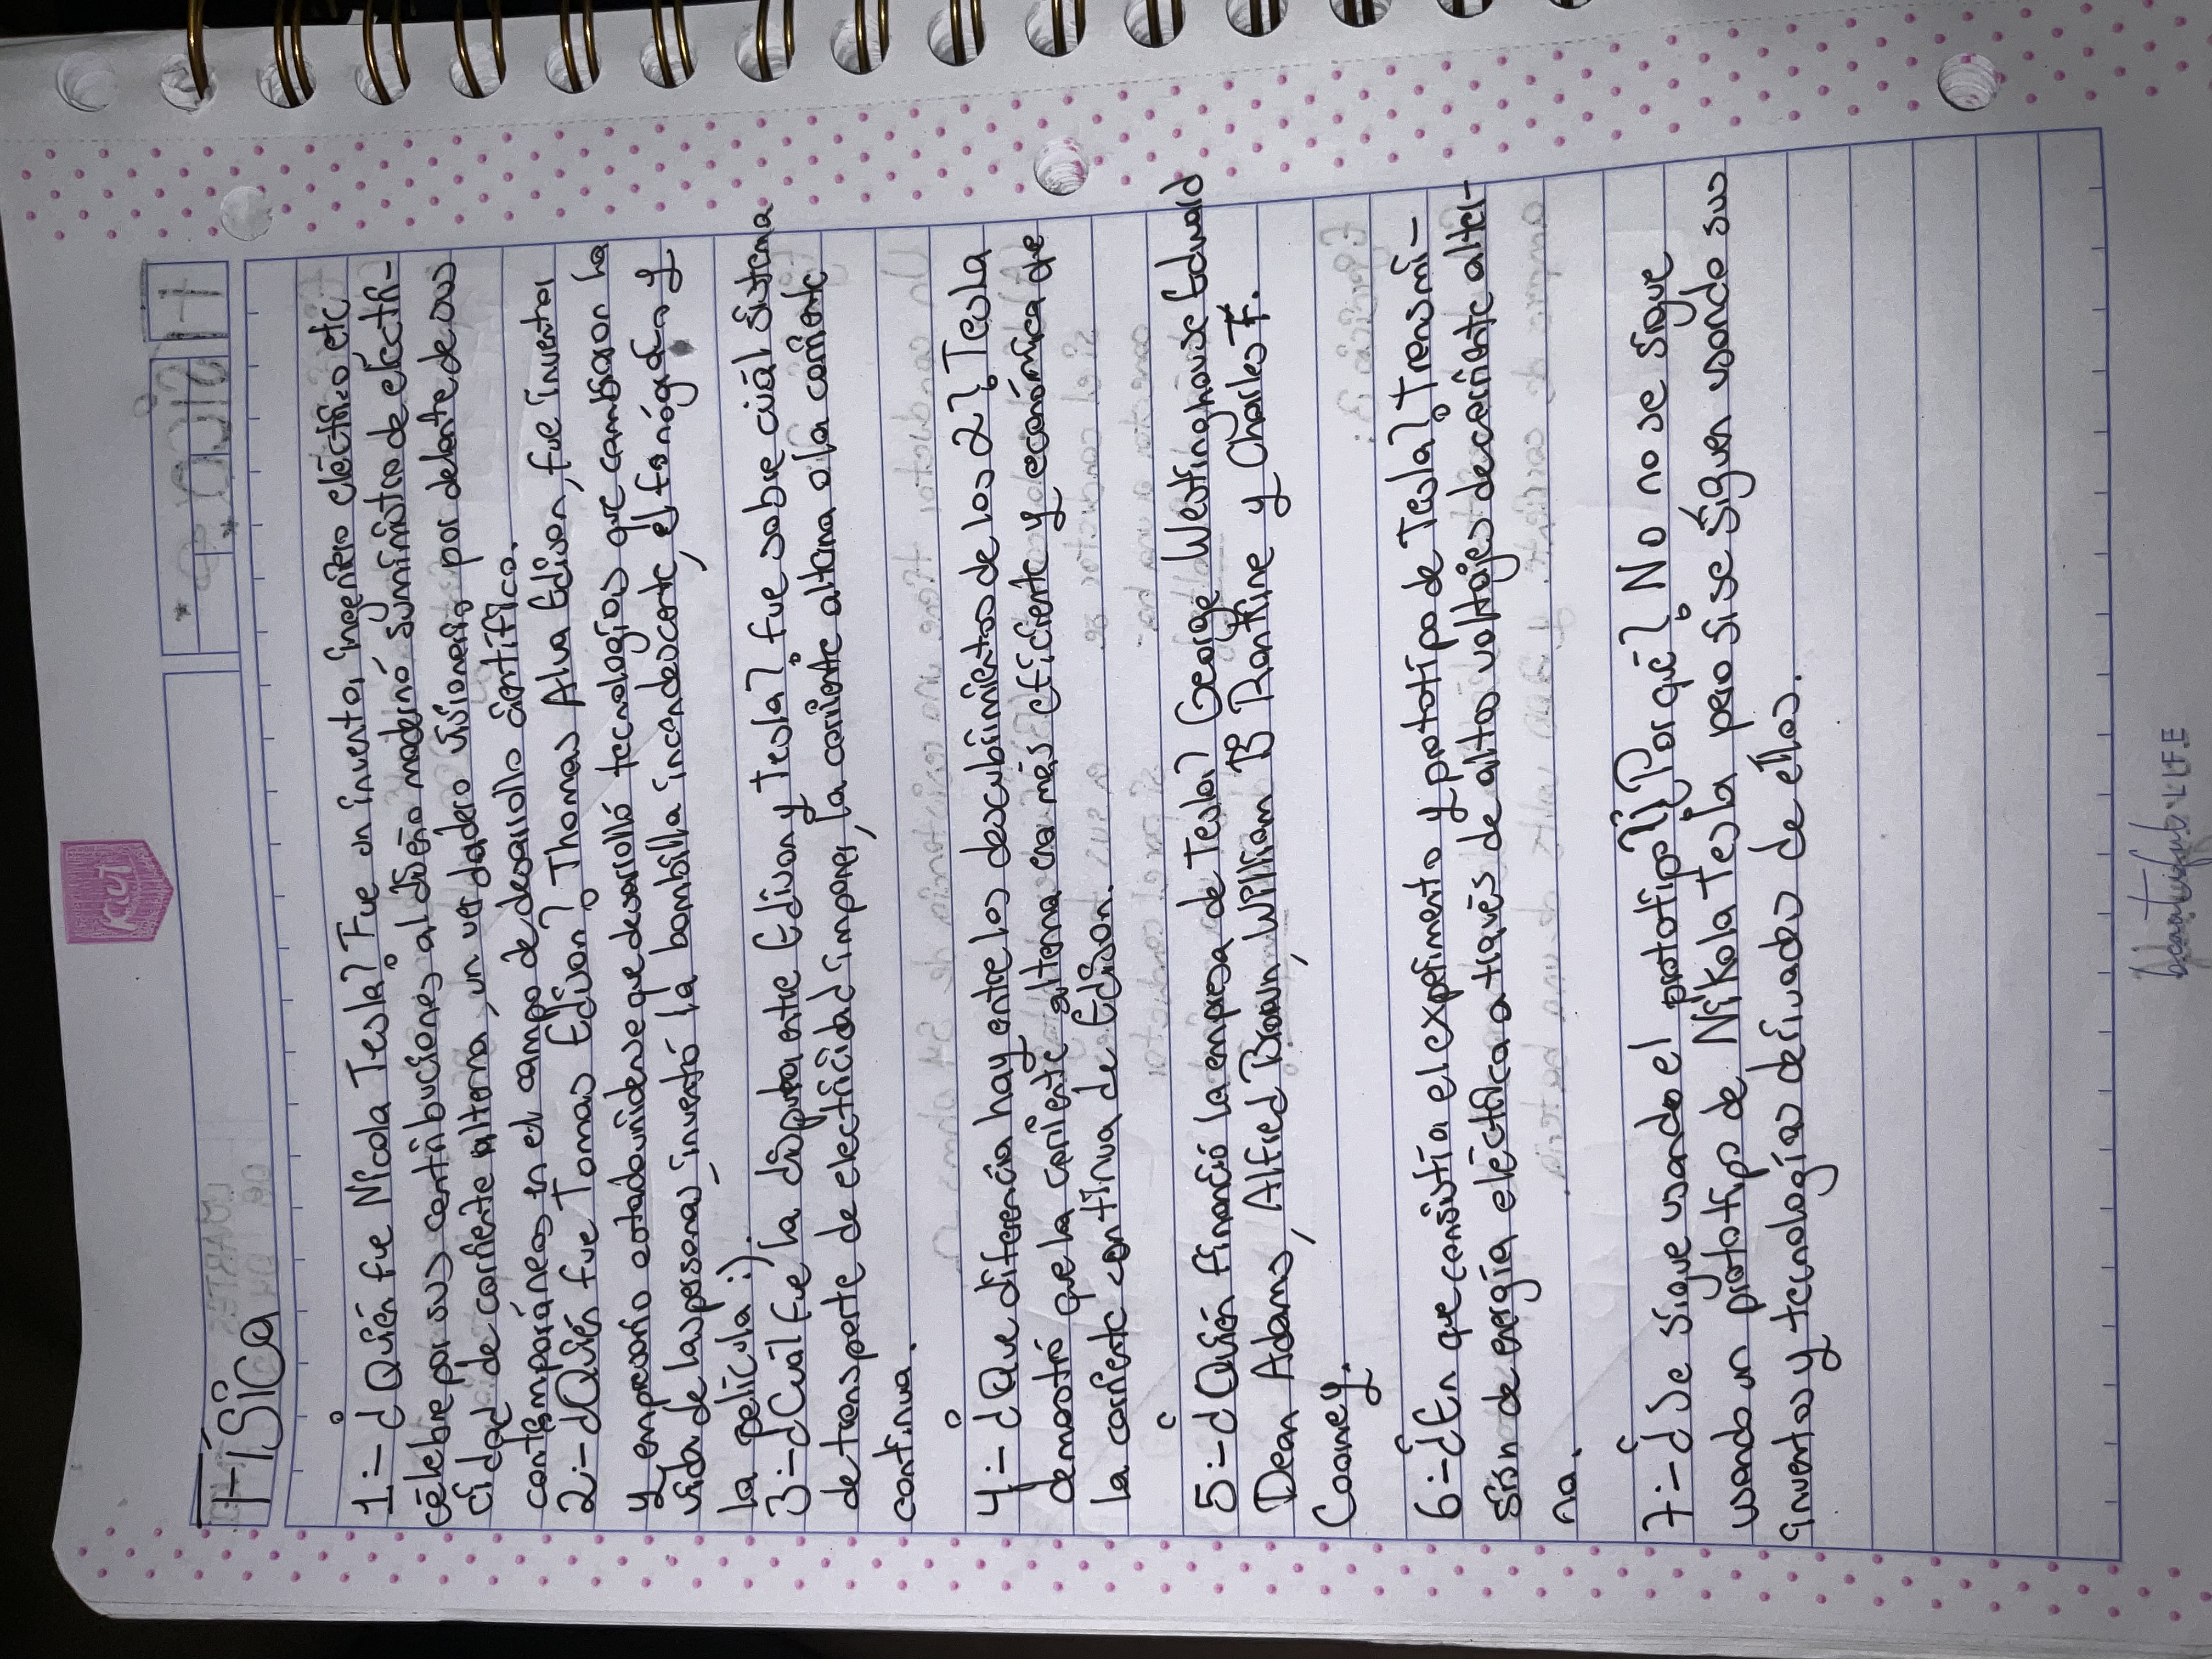 Física
1.- ¿Quién fue Nicola Tesla? Fue un inventor, ingeniero eléctrico etc
célebre por sus contribuciones al diseño moderno suministro de electri-
cidad de corriente alterna, un verdadero visionario por delante de sus
contemporáneos en el campo de desarrollo científico.
2.- ¿Quién fue Tomas Edison? Thomas Alva Edison, fue inventor
y empresario estadounidense que desarrolló tecnologías que cambiaron la
vida de las personas, inventó la bombilla incandescente, el fonógrafo y
la película :).
3.- ¿Cuál fue la disputa entre Edison y Tesla? fue sobre cuál sistema
de transporte de electricidad imponer, la corriente alterna o la corriente
continua.
4.- ¿Que diferencia hay entre los descubrimientos de los 2? Tesla
demostró que la corriente alterna era más eficiente y económica de
la corriente continua de Edison.
5.- ¿Quién financió la empresa de Tesla? George Westinghouse Edward
Dean Adams, Alfred Brown, William B Rankine y Charles F.
Cooney.
6.- ¿En que consistía el experimento y prototipo de Tesla? Transmi-
sión de energía eléctrica a través de altos voltajes de corriente alter-
na.
7.- ¿Se sigue usando el prototipo? ¿Por qué? No no se sigue
usando un prototipo de Nikola Tesla pero si se siguen usando sus
inventos y tecnologías derivados de ellos.
kiut
beautiful LIFE